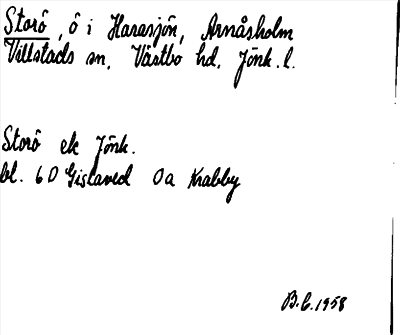 Storö, ö i Harasjön, Arnåsholm
Villstads sn, Västbo hd, Jönk. l.
Storö ek Jönk.
bl. 6D Gislaved 0a Krabby
B.C. 1958